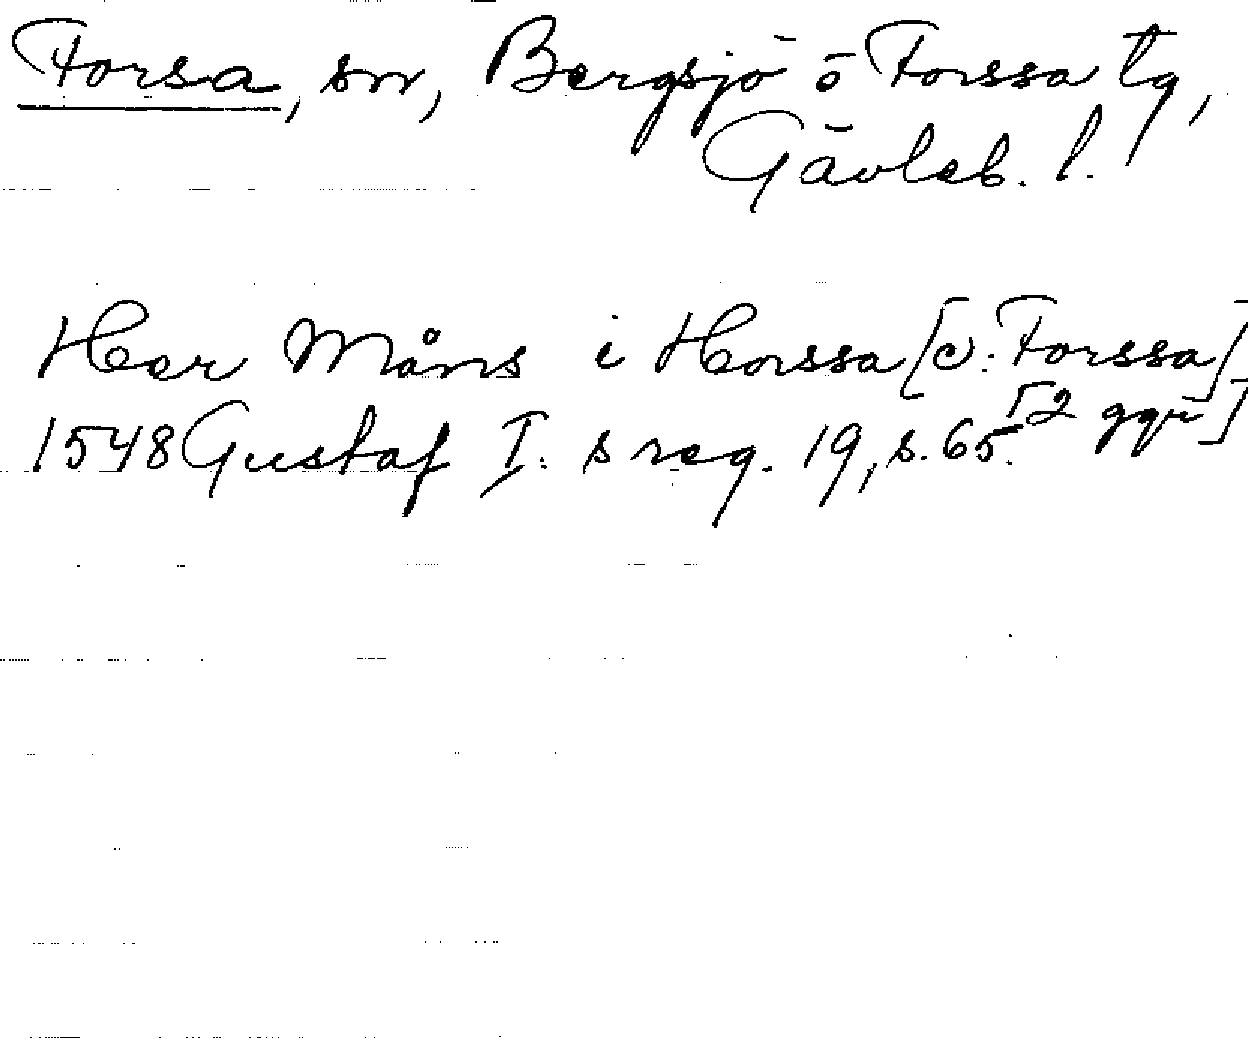 Forsa, sn, Bergsjö o Forssa tg,
Gävleb. l.
Her Måns i Horssa [ɔ: Forssa]
1548 Gustaf I:s reg. 19, s. 65. [2 ggr]